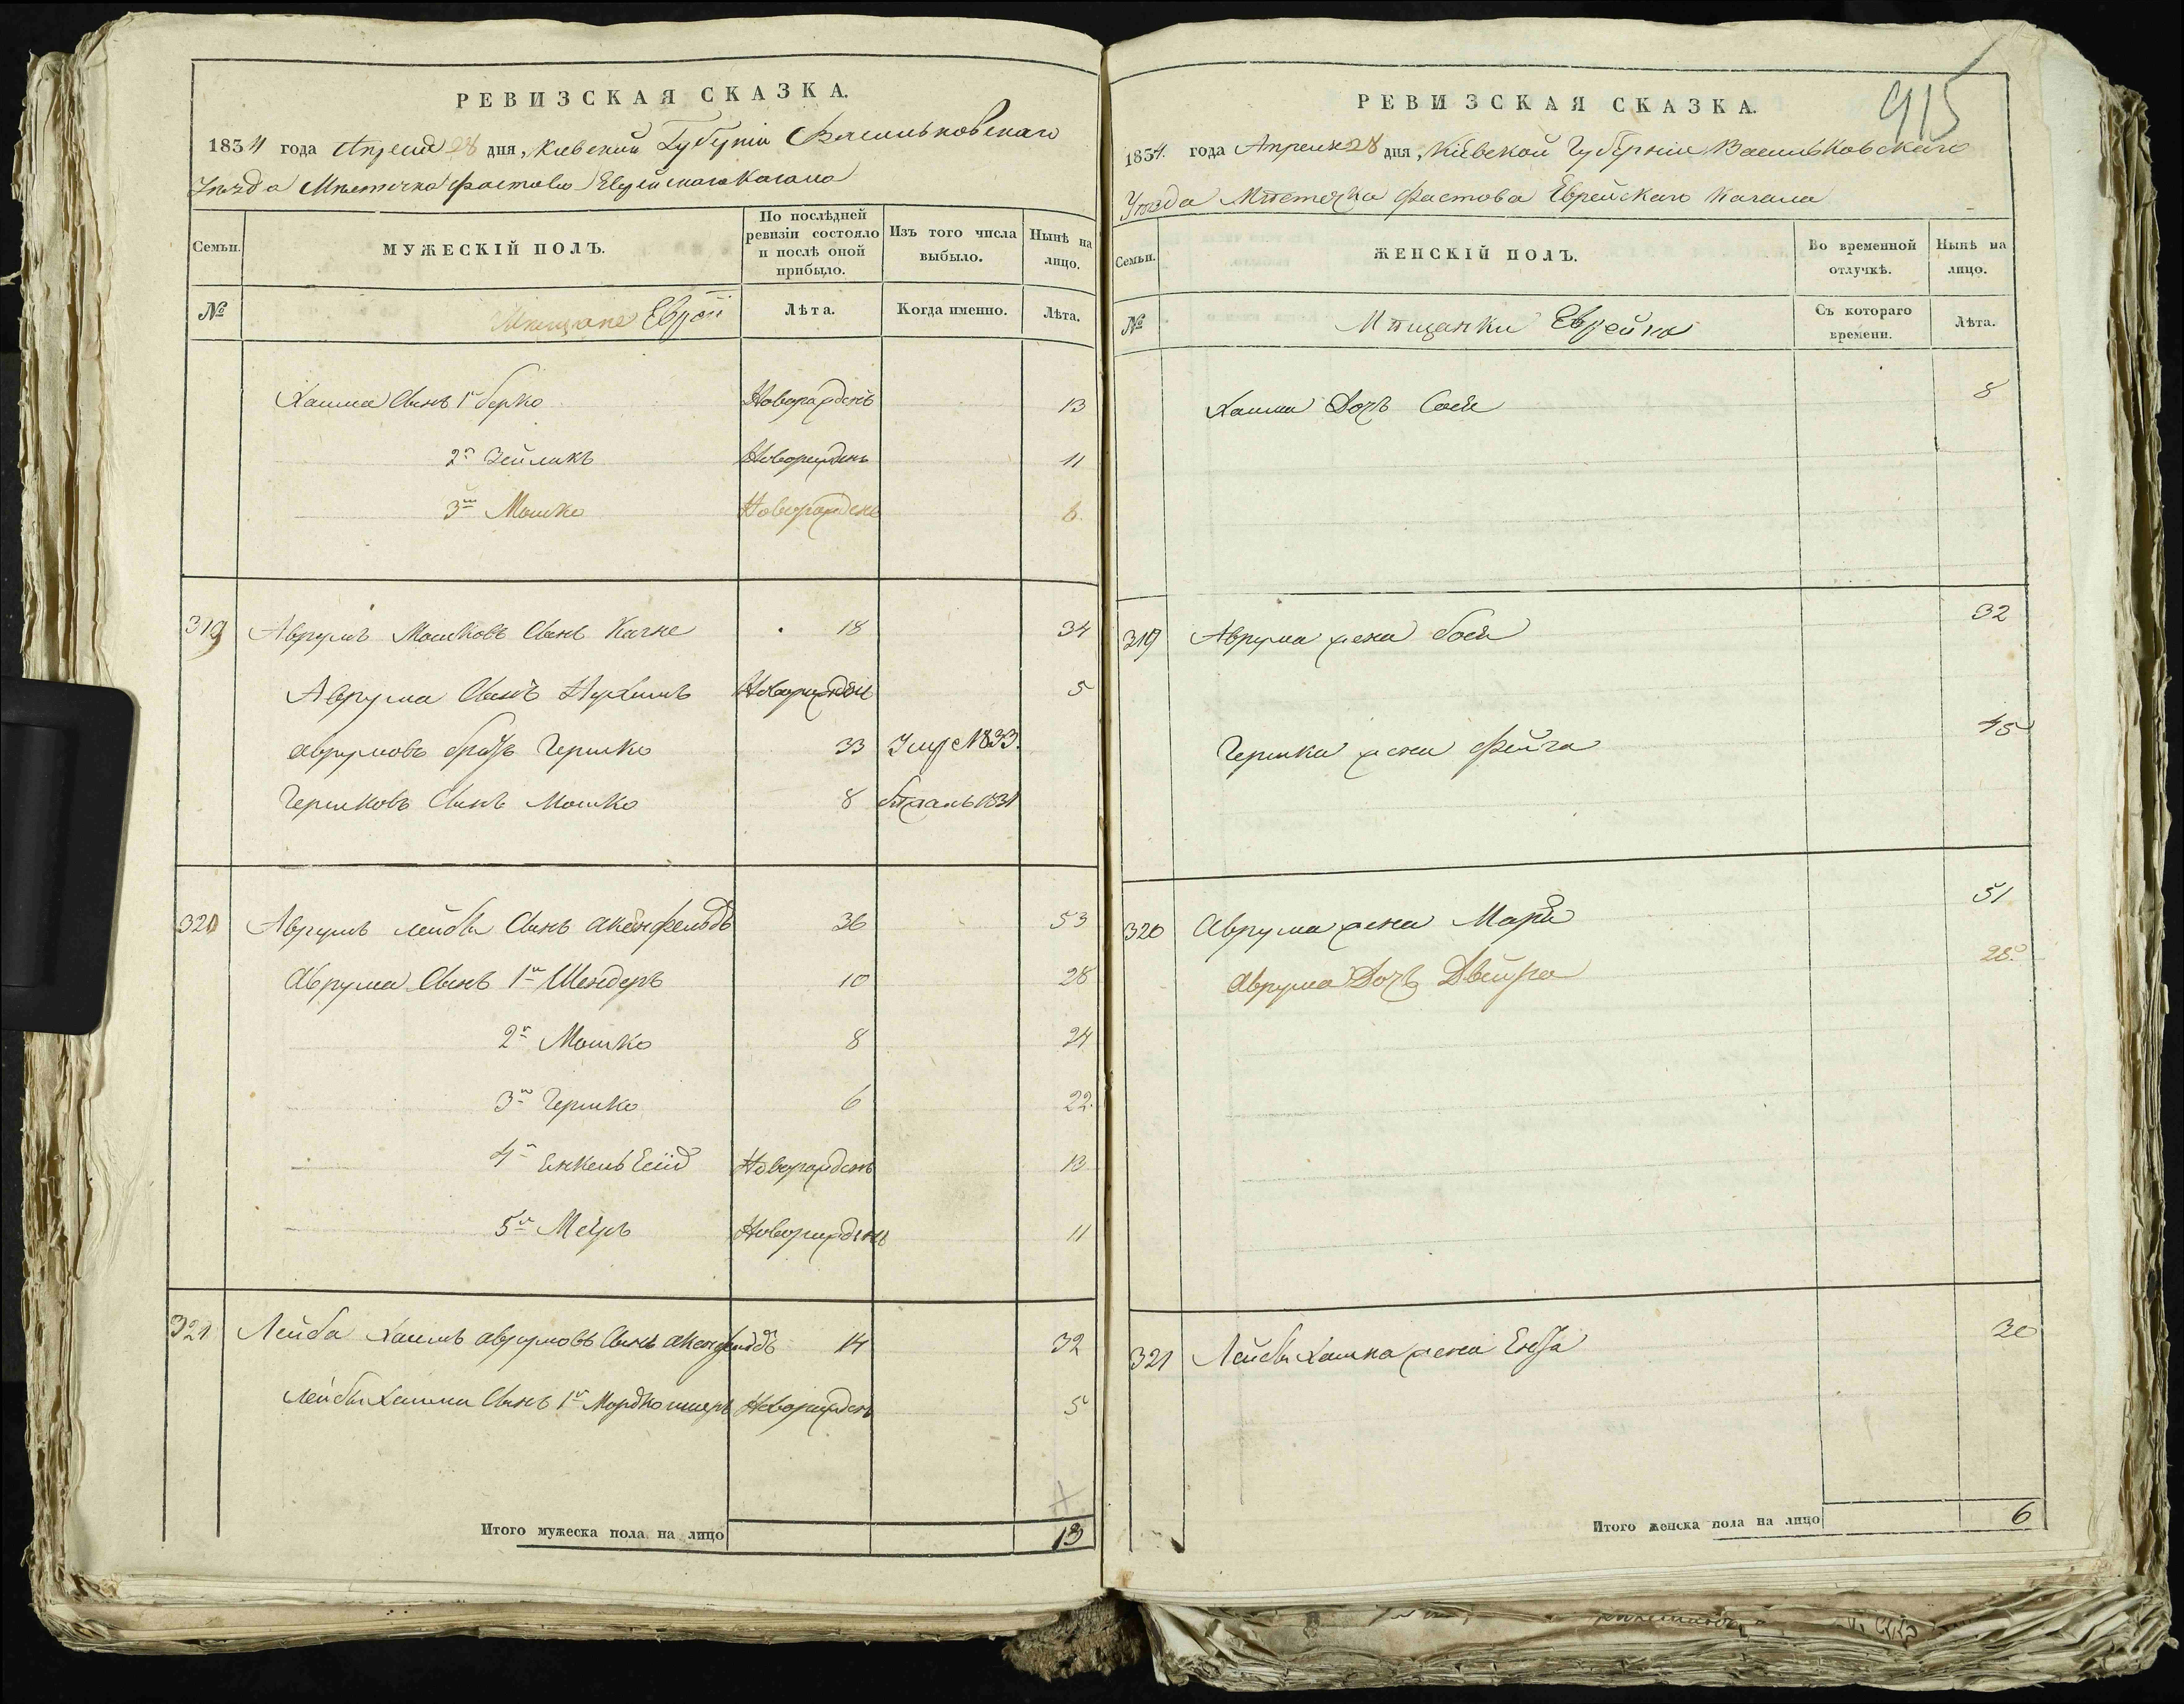 РЕВИЗСКАЯ СКАЗКА.
1834 года Апреля 28 дня, Киевской Губернiи Васильковскаго
Уѣзда Мѣстечка Фастова Еврейскаго Кагала
Семьи.
МУЖЕСКIЙ ПОЛЪ.
По послѣдней ревизiи состояло и послѣ оной прибыло.
Изъ того числа выбыло.
Нынѣ на лицо.
№
Мѣщане Евреи
Лѣта.
Когда именно.
Лѣта.
Хаима Сынъ 1й Берко Новорожденъ 13
2й Зейликъ Новорожденъ 11
3й Мошко Новорожденъ 6.
319 Аврумъ Мошковъ Сынъ 18 34
Аврума Сынъ Нухимъ Новорожденъ 5
Аврумовъ братъ Гершко 33 Умре 1833.
Гершковъ Сынъ Мошко 8 1831
320 Аврумъ Лейбы Сынъ Акснфельдъ 36 53
Аврума Сынъ 1й Шендеръ 10 28
2й Мошко 8 24
3й Гершко 6 22.
4й Новорожденъ 13
5й Меиръ Новорожденъ 11
321 Лейба Хаимъ Аврумовъ Сынъ Аксенфельдъ 14 32
Лейбы Хаима Сынъ 1й Мордко Новорожденъ 5
Итого мужеска пола на лицо 13
915
РЕВИЗСКАЯ СКАЗКА.
1834. года Апреля 28 дня, Кiевской Губернiи Васильковскаго
Уѣзда Мѣстечка Фастова Еврейскаго Кагала
Семьи.
ЖЕНСКIЙ ПОЛЪ.
Во временной отлучкѣ.
Нынѣ на лицо.
№
Мѣщанки Еврейки
Съ котораго времени.
Лѣта.
Хаима Дочь Сося 8
319 Аврума жена Бося 32
Гершка жена Фейга 45
320 Аврума жена Мария 51
Аврума Дочь Двейра 28.
321 Лейбы Хаима жена Ента 30
Итого женска пола на лицо 6